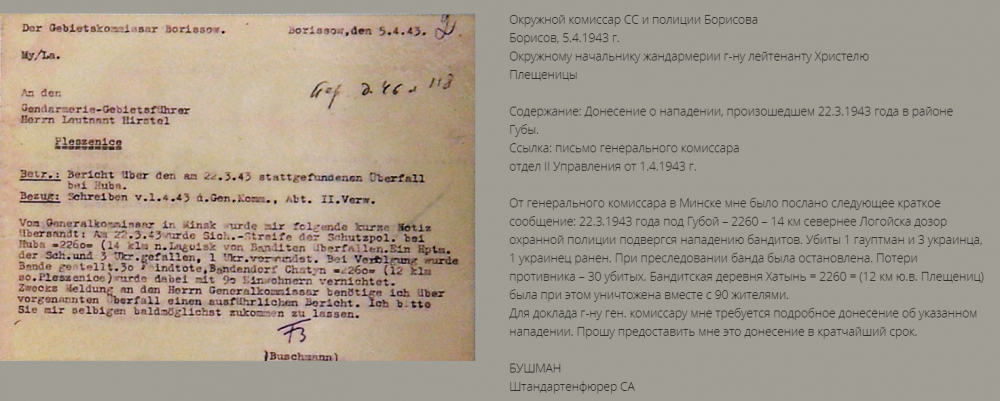 Der Gebietskommissar Borissow.
Borissow,den 5.4.43.
My/La.
An den
Gendarmerie-Gebietsführer
Herrn Leutnant Hirstel
Pleszenice
Betr.: Bericht über den am 22.3.43 stattgefundenen Überfall
bei Huba.
Bezug: Schreiben v.1.4.43 d.Gen.Komm., Abt. II.Verw.
Vom Generalkommissar in Minsk wurde mir folgende kurze Notiz
übersandt: Am 22.3.43 wurde Sich.-Streife der Schutzpol. bei
Huba =2260= (14 klm n.Lagoisk von Banditen überfallen.Ein Hptm.
der Sch.und 3 Ukr.gefallen, 1 Ukr.verwundet. Bei Verfolgung wurde
Bande gestellt.30 Feindtote,Bandendorf Chatyn =2260= (12 klm
so.Pleszenice)wurde dabei mit 90 Einwohnern vernichtet.
Zwecks Meldung an den Herrn Generalkommissar benötige ich über
vorgenannten Überfall einen ausführlichen Bericht. Ich bitte
Sie mir selbigen baldmöglichst zukommen zu lassen.
(Buschmann)
Окружной комиссар СС и полиции Борисова
Борисов, 5.4.1943 г.
Окружному начальнику жандармерии г-ну лейтенанту Христелю
Плещеницы
Содержание: Донесение о нападении, произошедшем 22.3.1943 года в районе
Губы.
Ссылка: письмо генерального комиссара
отдел II Управления от 1.4.1943 г.
От генерального комиссара в Минске мне было послано следующее краткое
сообщение: 22.3.1943 года под Губой – 2260 – 14 км севернее Логойска дозор
охранной полиции подвергся нападению бандитов. Убиты 1 гауптман и 3 украинца,
1 украинец ранен. При преследовании банда была остановлена. Потери
противника – 30 убитых. Бандитская деревня Хатынь = 2260 = (12 км ю.в. Плещениц)
была при этом уничтожена вместе с 90 жителями.
Для доклада г-ну ген. комиссару мне требуется подробное донесение об указанном
нападении. Прошу предоставить мне это донесение в кратчайший срок.
БУШМАН
Штандартенфюрер СА